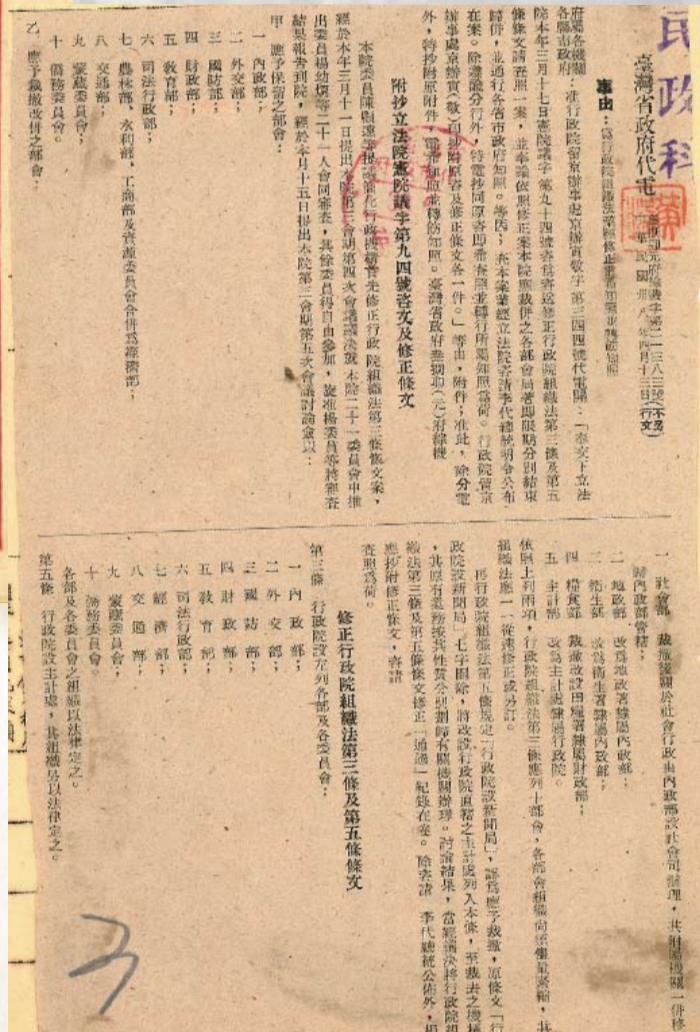 民政科
臺灣省政府代電
中華民國卅八年四月十三日(行文)
事由：為行政院組織法業經修正電希知照並轉飭知照
府屬各機關
各縣市政府：准行政院留京辦事處京辦寅敬字第三四四號代電開：「奉交下立法
院本年三月十七日憲院議字第九十四號咨為咨送修正行政院組織法第三條及第五
條條文請查照一案，並奉諭依照修正案本院應裁併之各部會局署即限期分別結束
歸併，並通行各省市政府知照。等因；充本案業經立法院咨請李代總統明令公布
在案。除遵諭分行外，特電抄同原咨即希查照並轉行所屬知照為荷。行政院留京
辦事處京辦寅(敬)印抄附原咨及修正條文各一件。」等由，附件；准此，除分電
外，特抄附原附件，電希知照並轉飭知照。臺灣省政府
附抄立法院憲院議字第九四號咨文及修正條文
本院委員陳顧遠等提議簡化行政機構首先修正行政院組織法第三條條文案，
經於本年三月十一日提出本院第三會期第四次會議議決就本院二十一委員會中推
出委員楊幼炯等二十一人會同審查，其餘委員得自由參加，旋准楊委員等將審查
結果報告到院，經於本月十五日提出本院第三會期第五次會議討論僉以：
甲 應予保留之部會：
一 內政部；
二 外交部；
三 國防部；
四 財政部；
五 教育部；
六 司法行政部；
七 農林部、水利部、工商部及資源委員會合併為經濟部；
八 交通部；
九 蒙藏委員會；
十 僑務委員會。
乙 應予裁撤改併之部會：
一 社會部 裁撤後關於社會行政由內政部設社會司辦理，其附屬機關一併移
歸內政部管轄；
二 地政部 改為地政署隸屬內政部；
三 衛生部 改為衛生署隸屬內政部；
四 糧食部 裁撤改設田糧署隸屬財政部；
五 主計部 改為主計處隸屬行政院。
依照上列兩項，行政院組織法第三條應列十部會，各部會組織尚須儘量緊縮，其
組織法應一一從速修正或另訂。
再行政院組織法第五條規定「行政院設新聞局」，認為應予裁撤，原條文「行
政院設新聞局」七字刪除，將改設行政院直轄之主計處列入本條，至裁去之機構
，其原有業務按其性質分別劃歸有關機關辦理。討論結果，當經議決將行政院組
織法第三條及第五條條文修正「通過」紀錄在卷。除咨請 李代總統公佈外，相
應抄附修正條文，咨請
查照為荷。
修正行政院組織法第三條及第五條條文
第三條 行政院設左列各部及各委員會：
一 內政部；
二 外交部；
三 國防部；
四 財政部；
五 教育部；
六 司法行政部；
七 經濟部；
八 交通部；
九 蒙藏委員會；
十 僑務委員會。
各部及各委員會之組織以法律定之。
第五條 行政院設主計處，其組織另以法律定之。